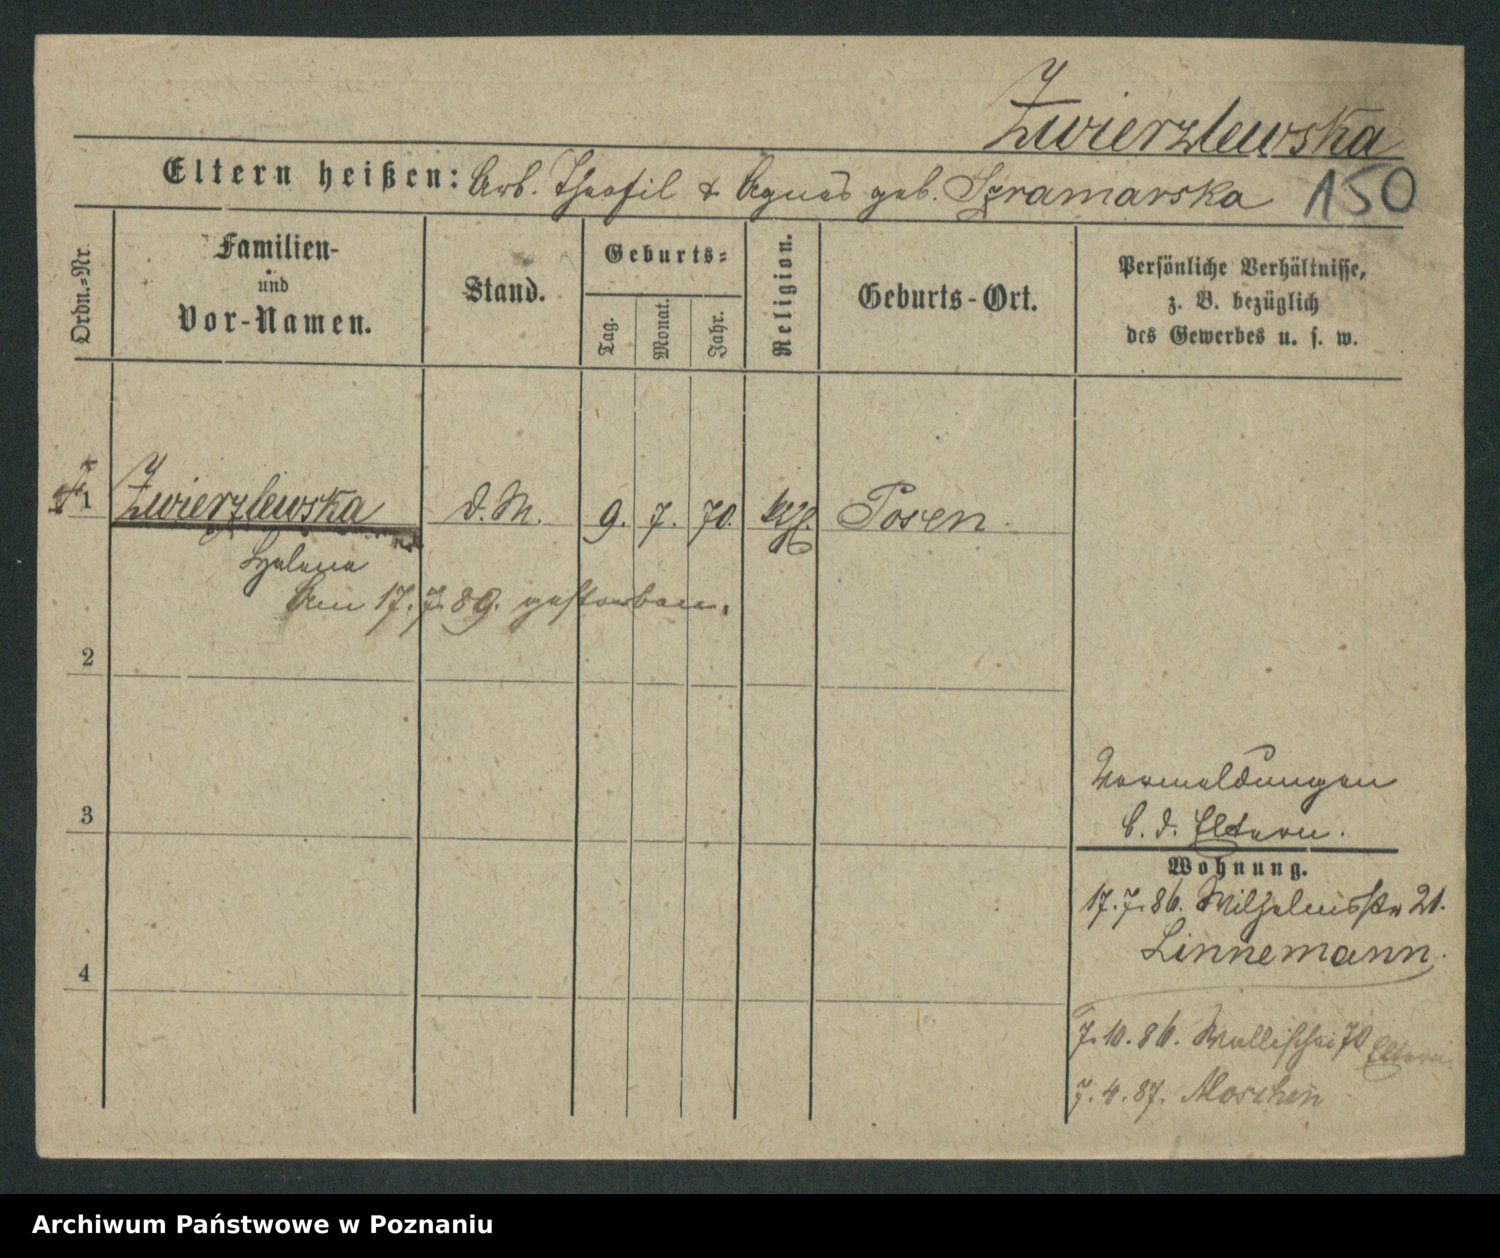 Zwierzlewska
Eltern heißen: Arb. Theofil & Agnes geb. Szramarska 150
Ordn.-Nr.
Familien-
und
Vor-Namen.
Stand.
Geburts-
Tag.
Monat.
Jahr.
Religion.
Geburts-Ort.
Persönliche Verhältnisse,
z. B. bezüglich
des Gewerbes u. s. w.
1 Zwierzlewska d. M. 9. 7. 70. kth. Posen.
Helena
Am 17.7.89. gestorben.
2
3
4
Vormeldungen
b. d. Eltern.
Wohnung.
17.7.86. Wilhelmsstr 21.
Linnemann.
7.10.86. Wallischei 70 Eltern.
7.4.87. Moschin
Archiwum Państwowe w Poznaniu